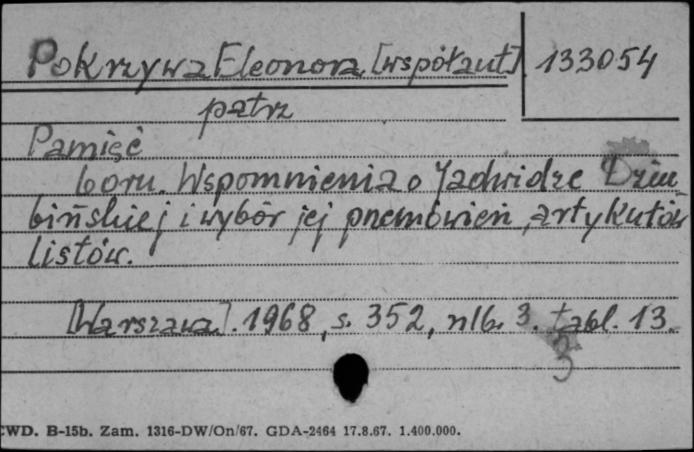 Pokrzywa Eleonora [współaut.] 133054
patrz
Pamięć
boru. Wspomnienia o Jadwidze Dziu-
bińskiej i wybór jej przemówień, artykułów
listów.
[Warszawa]. 1968, s. 352, nlb. 3. tabl. 13.
3
CWD. B-15b. Zam. 1316-DW/On/67. GDA-2464 17.8.67. 1.400.000.